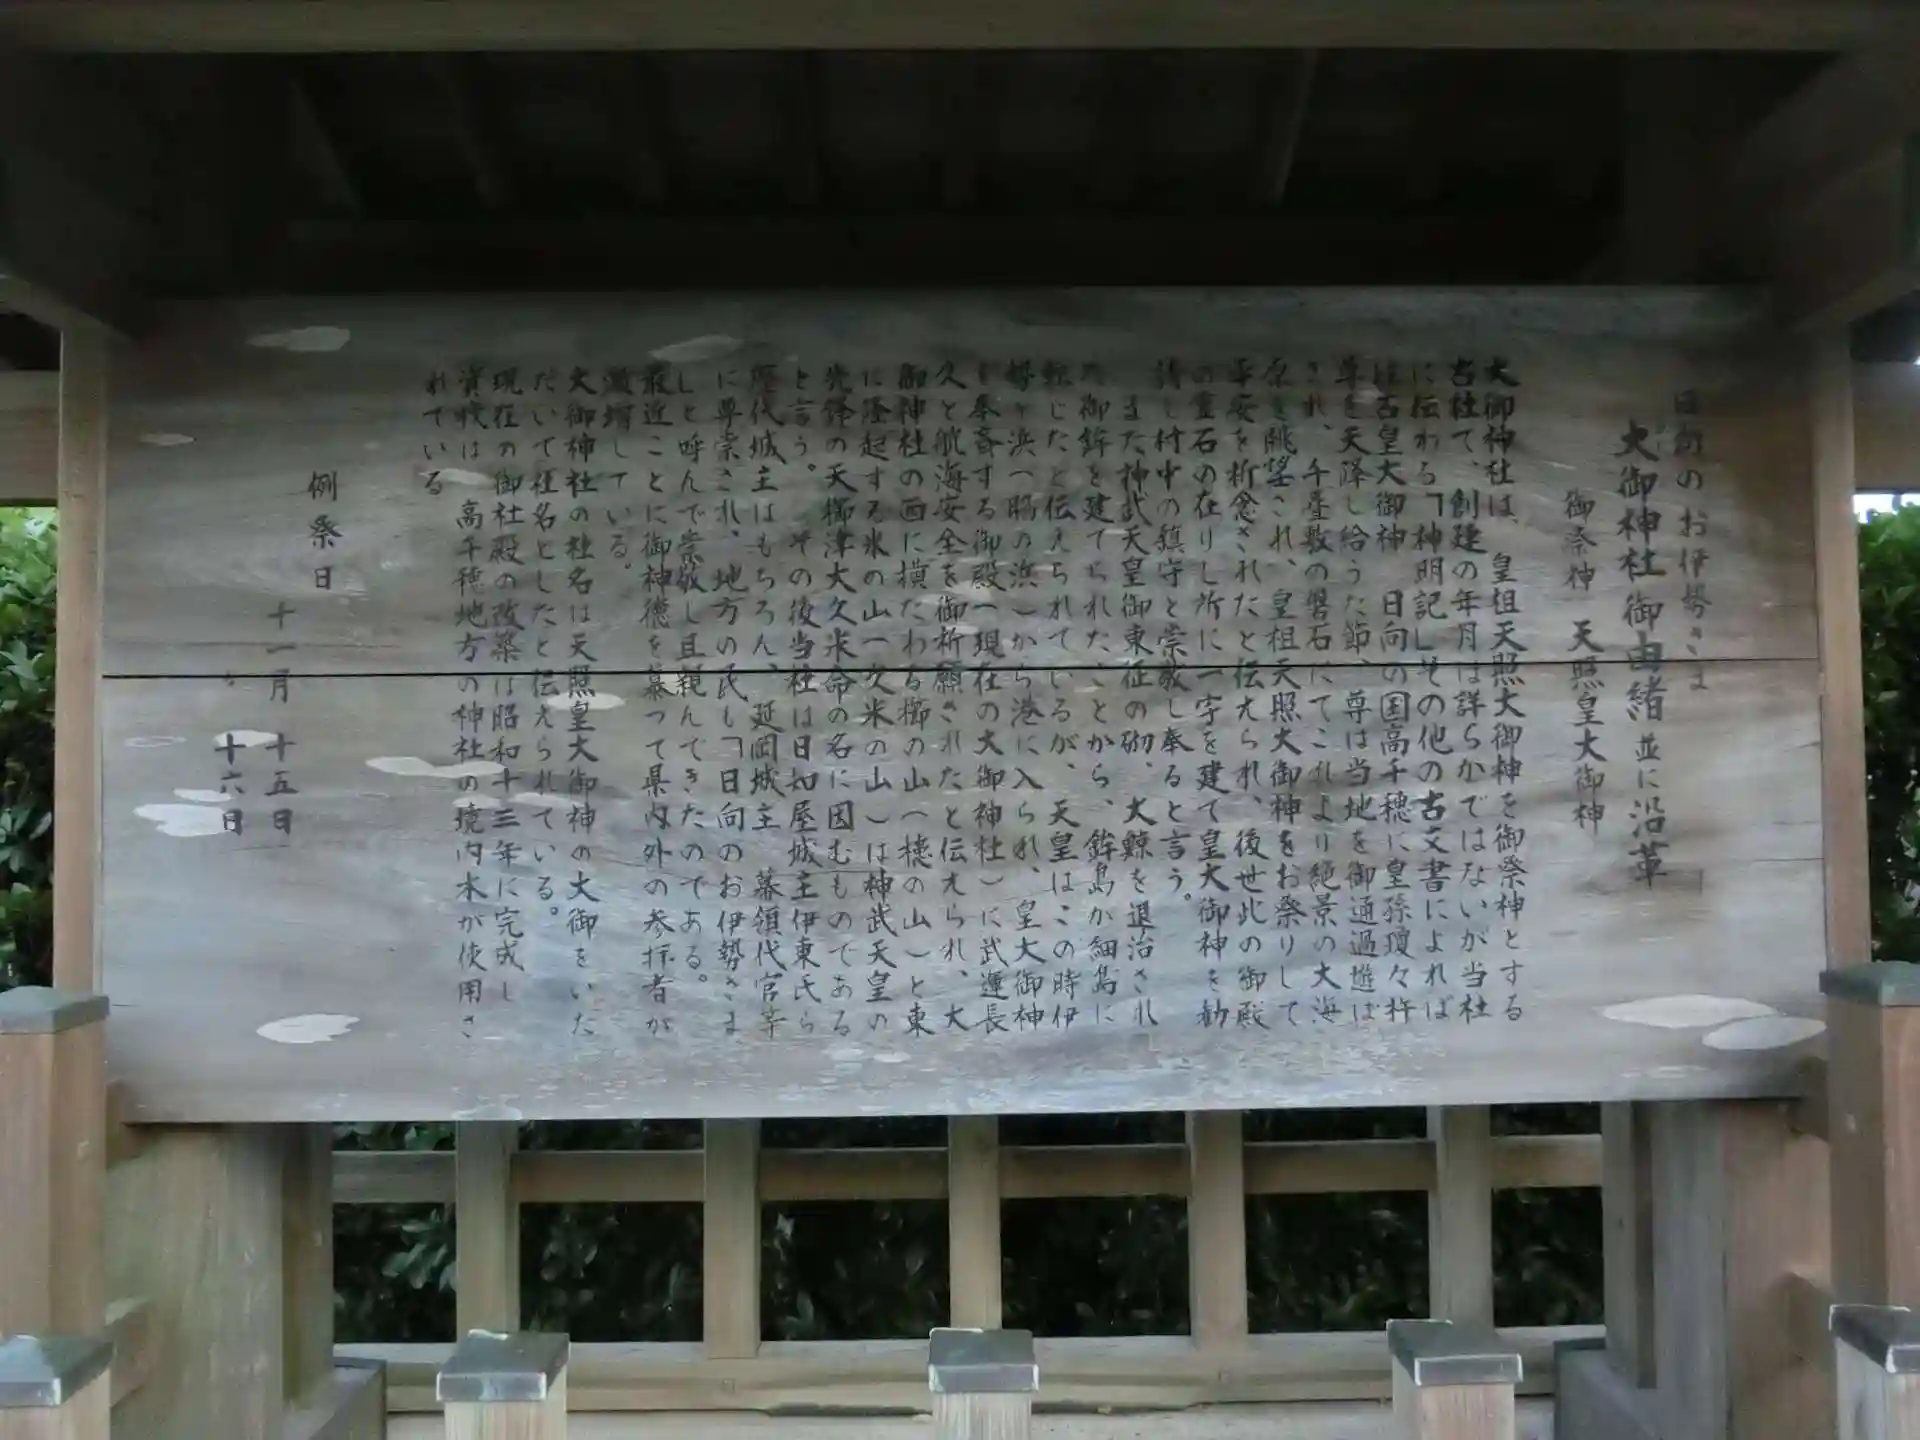 日向のお伊勢さま
大御神社御由緒並に沿革
御祭神 天照皇大御神
大御神社は、皇祖天照大御神を御祭神とする
古社で、創建の年月は詳らかではないが当社
に伝わる「神明記」その他の古文書によれば
往古皇大御神 日向の国高千穂に皇孫瓊々杵
尊を天降し給うた節、尊は当地を御通過遊ば
され、千畳敷の磐石にてこれより絶景の大海
原を眺望され、皇祖天照大御神をお祭りして
平安を祈念されたと伝えられ、後世此の御殿
の霊石の在りし所に一宇を建て皇大御神を勧
請し村中の鎮守と崇敬し奉ると言う。
また神武天皇御東征の砌、大鯨を退治され
た御鉾を建てられたことから、鉾島が細島に
転じたと伝えられているが、天皇はこの時伊
勢ヶ浜(脇の浜)から港に入られ、皇大御神
を奉斎する御殿(現在の大御神社)に武運長
久と航海安全を御祈願されたと伝えられ、大
御神社の西に横たわる櫛の山(樋の山)と東
に隆起する米の山(久米の山)は神武天皇の
先鋒の天櫛津大久米命の名に因むものである
と言う。 その後当社は日知屋城主伊東氏ら
歴代城主はもちろん、延岡城主 幕領代官等
に尊崇され、地方の民も「日向のお伊勢さま
」と呼んで崇敬し且親んできたのである。
最近ことに御神徳を慕って県内外の参拝者が
激増している。
大御神社の社名は天照皇大御神の大御をいた
だいて社名としたと伝えられている。
現在の御社殿の改築は昭和十三年に完成し
資材は 高千穂地方の神社の境内木が使用さ
れている
例祭日
十一月 十五日
〃 十六日